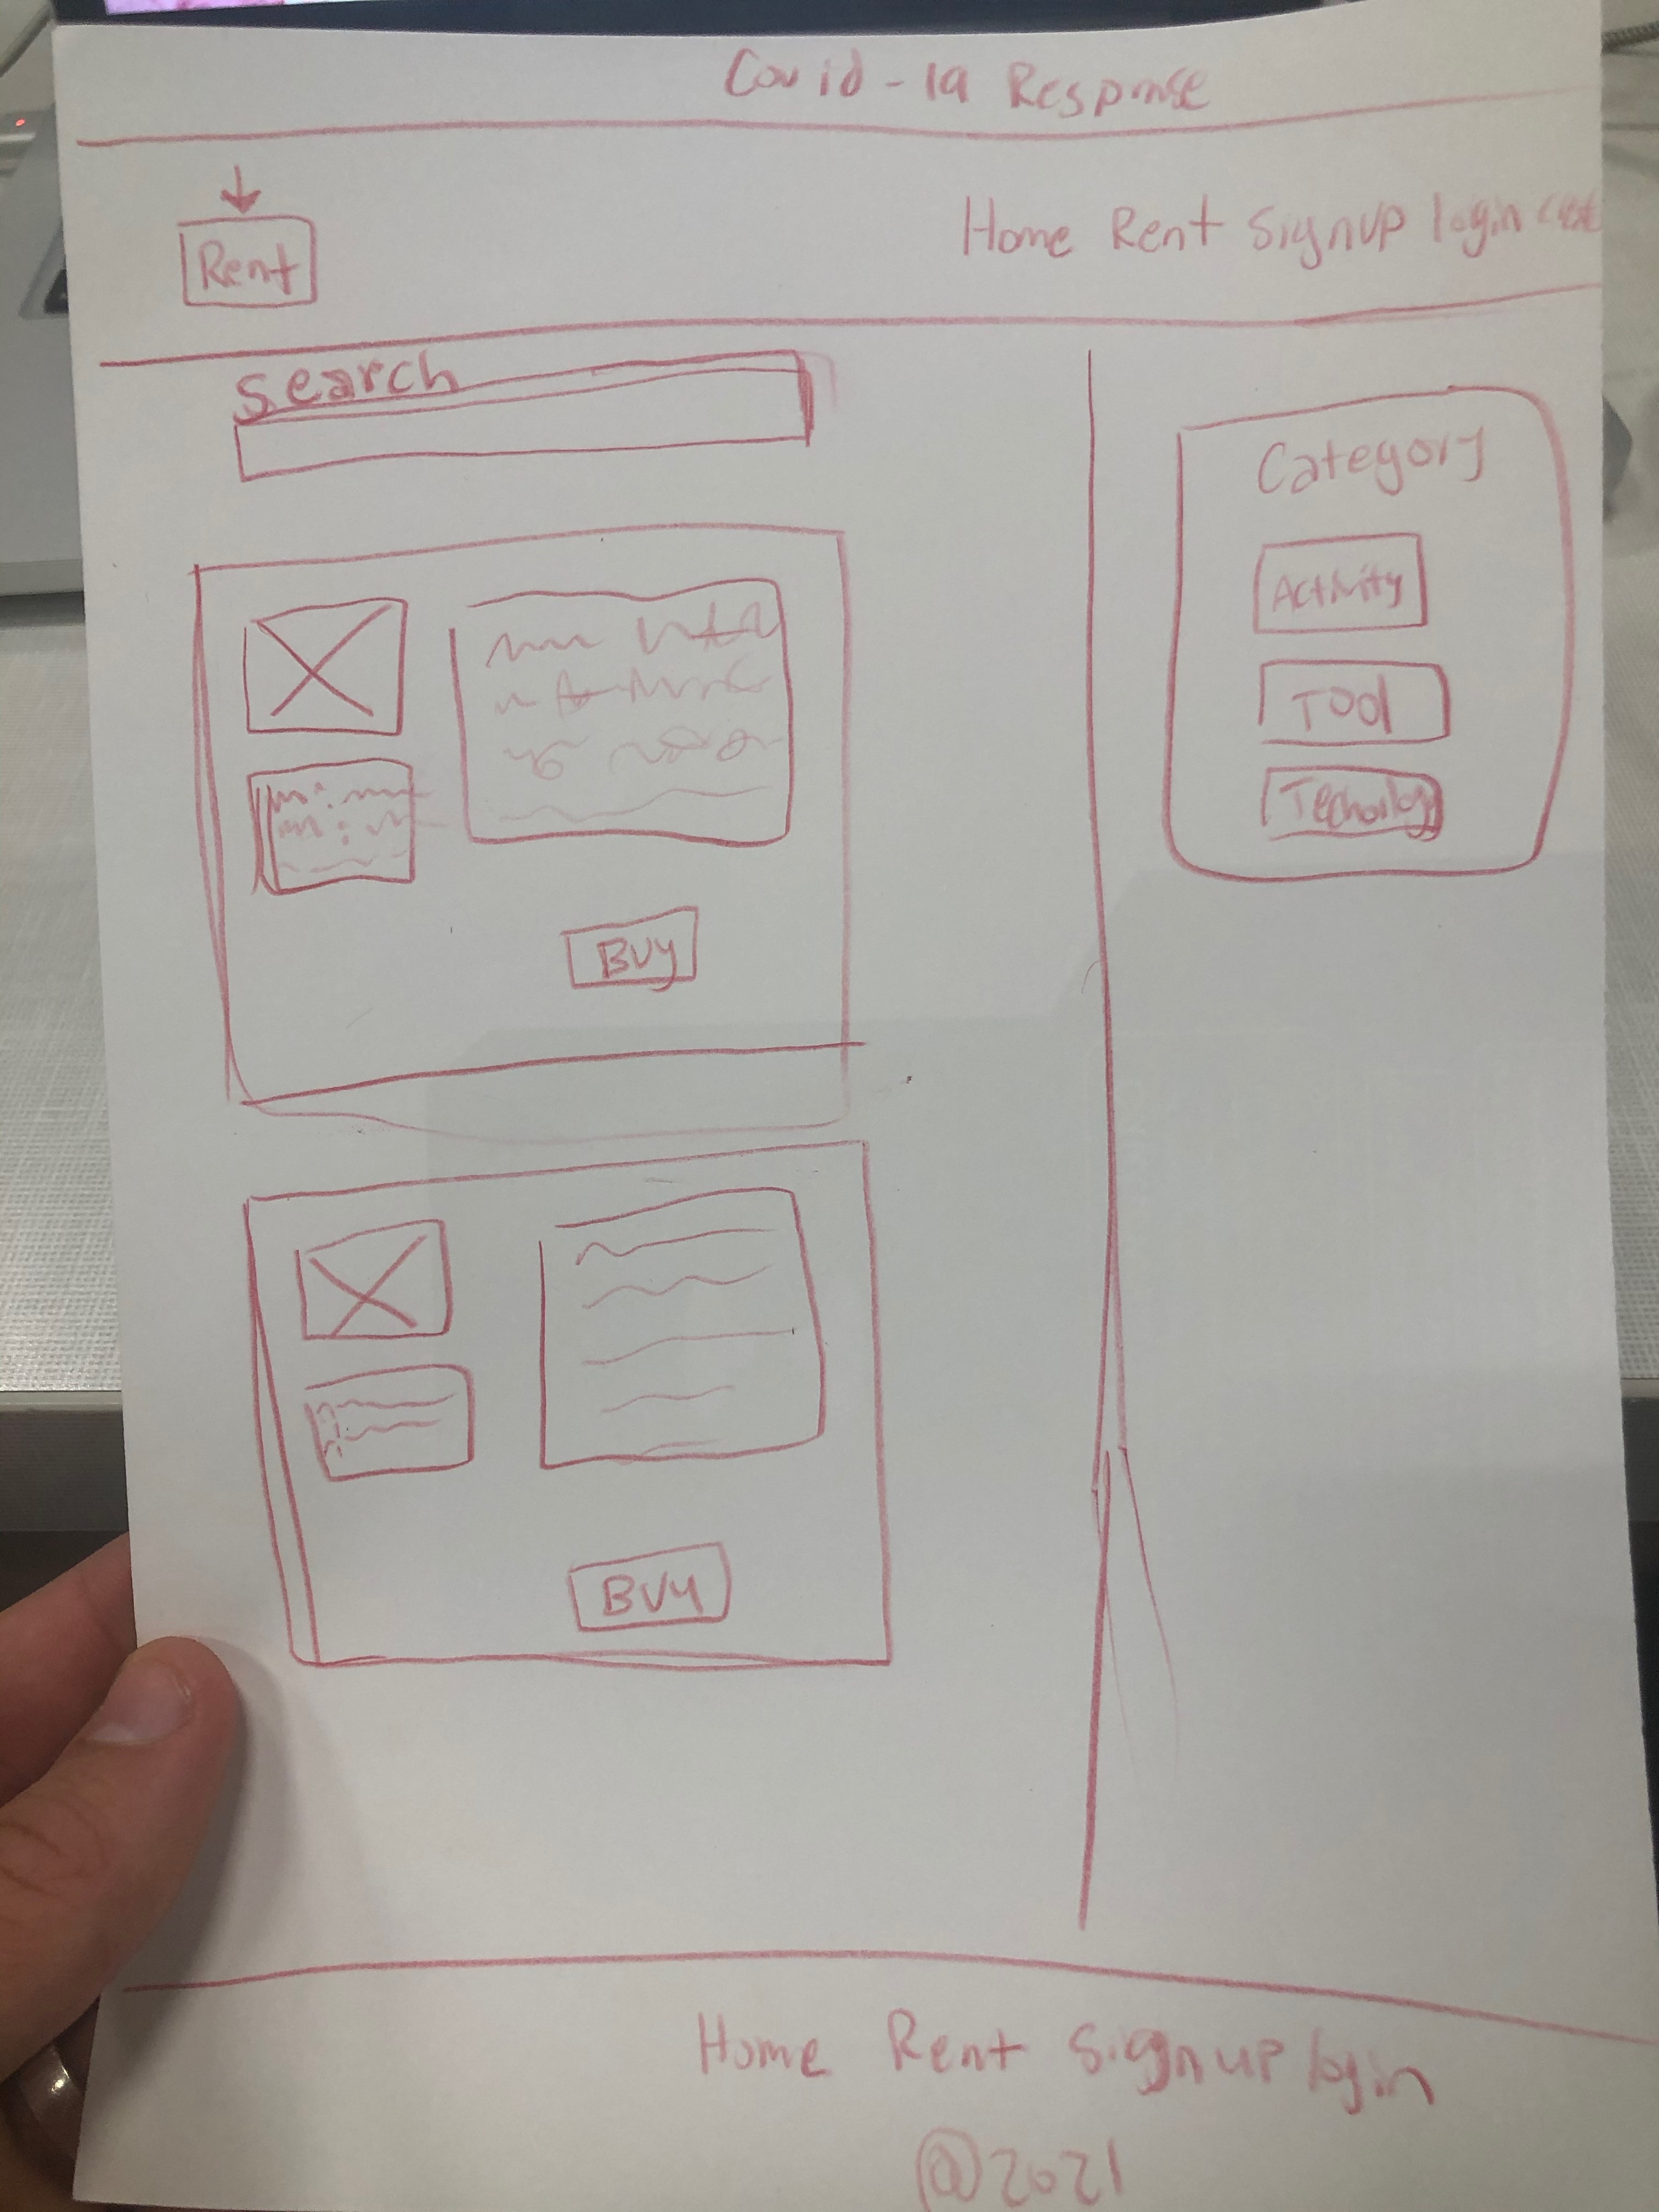 Covid-19 Response
Home Rent Signup login
Rent
search
Category
Activity
Tool
Buy
Buy
Home Rent Signup login
@2021